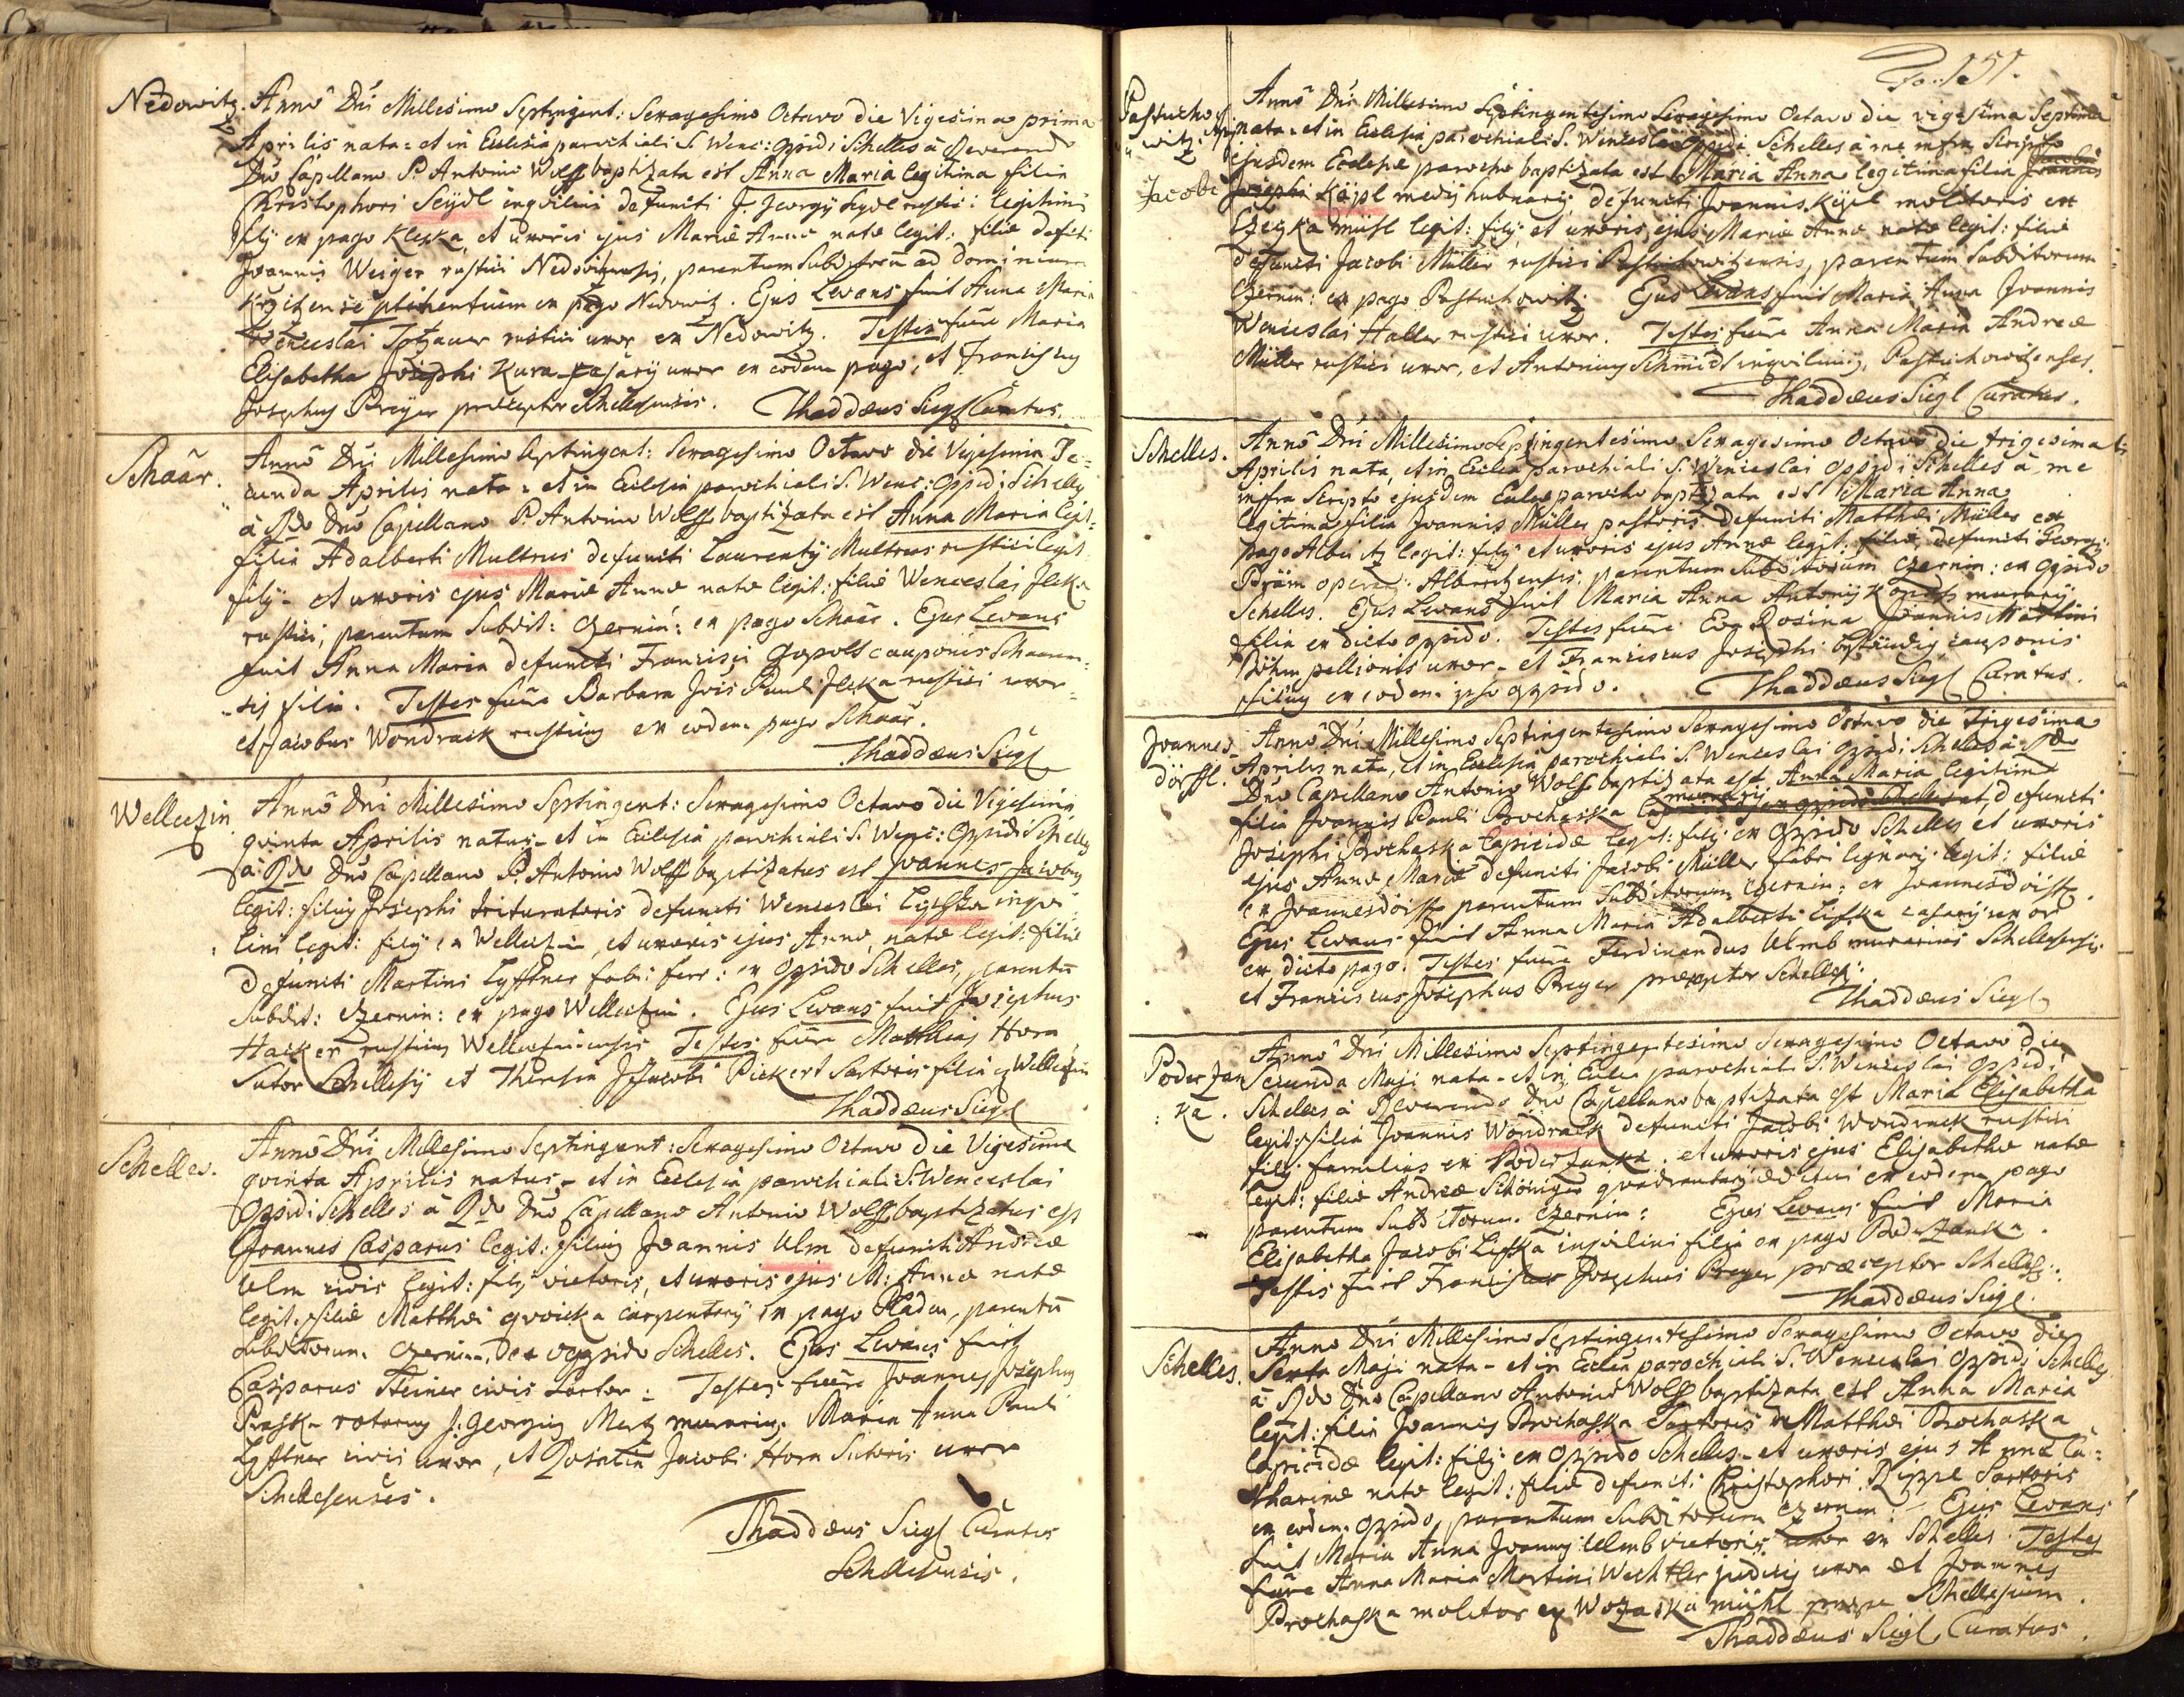 Nedowitz. Anno Dni Millesimo Septingent: Sexagesimo Octavo die Vigesima prima
Aprilis nata: et in Ecclesia parochiali S. Wenc: Oppidi Schelles à Reverendo
Dno Capellano P. Antonio Wolff baptizata est Anna Maria legitima filia
Christophori Seijdl inqvilini defuncti J. Georgij Seydl rustici legitimi
filij ex pago Kleschka, et uxoris ejus Mariæ Annæ natæ legit: filiæ defcti
Joannis Weiger rustici Nedowitzensis, parentum Subditorum ad dominium
ptinentium ex pago Nedowitz. Ejus Levans fuit Anna Maria
Wenceslai Totzauer rustici uxor ex Nedowitz. Testes fuere Maria
Elisabetha Josephi Kura casarij uxor ex eodem pago, et Franciscus
Josephus Preyer præceptor Schellesensis. Thaddæus Siegl Curatus.
Schaar. Anno Dni Millesimo Septingent: Sexagesimo Octavo die Vigesima Se-
cunda Aprilis nata: et in Ecclesia parochiali S. Wenc: Oppidi Schelles
à Rdo Dno Capellano P. Antonio Wolff baptizata est Anna Maria legit:
filia Adalberti Multrus defuncti Laurentij Multrus rustici legit:
filij - et uxoris ejus Mariæ Annæ natæ legit: filiæ Wenceslai Jleka
rustici, parentum Subdit: Czernin: ex pago Schaar. Ejus Levans
fuit Anna Maria defuncti Francisci Gopolt cauponis Schaaren-
sis filia. Testes fuere Barbara Jois Pauli Jleka rustici uxor
et Jacobus Wondrack rusticus ex eodem pago Schaar.
Thaddæus Siegl
Wellectzin Anno Dni Millesimo Septingent: Sexagesimo Octavo die Vigesima
qvinta Aprilis natus - et in Ecclesia parochiali S. Wenc: Oppidi Schelles
à Rdo Dno Capellano P. Antonio Wolff baptizatus est Joannes Jacobus
legit: filius Josephi trituratoris defuncti Wenceslai Lischka inqvi-
lini legit: filij ex Wellectzin, et uxoris ejus Annæ, natæ legit: filiæ
defuncti Martini Lyfftner fabri ferr: ex Oppido Schelles, parentu
Subdit: Czernin: ex pago Wellectzin. Ejus Levans fuit Josephus
Hacker rusticus Wellectzinensis Testes fuere Matthias Horn
Sutor Schellesij et Theresia Jacobi Pickert Sartoris filia ex Wellectzin
Thaddæus Siegl
Schelles. Anno Dni Millesimo Septingent: Sexagesimo Octavo die Vigesima
qvinta Aprilis natus - et in Ecclesia parochiali S. Wenceslai
Oppidi Schelles à Rdo Dno Capellano Antonio Wolff baptizatus est
Joannes Casparus legit: filius Joannis Ulm defuncti Andreæ
Ulm civis legit: filij vietoris, et uxoris ejus M: Annæ natæ
legit. filiæ Matthæi qvoicka carpentarij ex pago Pladen, parentu
Subditorum Czernin. ex oppido Schelles. Ejus Levans fuit
Casparus Steiner civis Sartor: Testes fuere Joannes Josephus
Praska rotarius J: Georgius Mertz murarius. Maria Anna Pauli
Lyfftner civis uxor, et Rosalia Jacobi Horn Sutoris uxor
Schellesenses.
Thaddæus Siegl Curatus
Schellesensis.
Fo. 151.
Pastucho-
witz. Anno Dni Millesimo Septingentesimo Sexagesimo Octavo die vigesima Septima
nata: et in Ecclesia parochiali S. Wenceslai Oppidi Schelles à me infra Scripto
ejusdem Ecclesiæ parocho baptizata est Maria Anna legitima filia Joannis
Jacobi Josephi Köjpl medij hubnarij, defuncti Joannis Köjpl molitoris ex
mühl legit: filij, et uxoris ejus Mariæ Annæ natæ legit: filiæ
defuncti Jacobi Müller rustici Pastuchowitzensis, parentum Subditorum
Czernin: ex pago Pastuchowitz. Ejus Levans fuit Maria Anna Joannis
Wenceslai Haller rustici uxor. Testes fuere Anna Maria Andreæ
Müller rustici uxor, et Antonius Schmidt inqvilinus, Pastuchowitzenses.
Thaddæus Siegl Curatus.
Schelles. Anno Dni Millesimo Septingentesimo Sexagesimo Octavo die trigesima
Aprilis nata, et in Ecclia parochiali S. Wenceslai Oppidi Schelles à me
infra Scripto ejusdem Eccliæ parocho baptizata est Maria Anna
legitima filia Joannis Müller pastoris defuncti Matthæi Müller ex
pago Albritz legit: filij et uxoris ejus Annæ legit: filiæ defuncti Georgij
Präm Albritzensis: parentum Subditorum Czernin: ex Oppido
Schelles. Ejus Levans fuit Maria Anna Antonij Kopatsch murarij
filia ex dicto oppido. Testes fuere Eva Rosina Joannis Martini
Böhm pellionis uxor - et Franciscus Josephi cauponis
filius ex eodem ipso oppido. Thaddæus Siegl Curatus.
Joannes-
dörffl. Anno Dni Millesimo Septingentesimo Sexagesimo Octavo die Trigesima
Aprilis nata, et in Ecclesia parochiali S. Wenceslai Oppidi Schelles à Rdo
Dno Capellano Antonio Wolff baptizata est Anna Maria legitima
filia Joannis Pauli Prochaska murarij ex oppido Schelles et, defuncti
Josephi Prochaska lapicidæ legit: filij ex Oppido Schelles et uxoris
ejus Annæ Mariæ defuncti Jacobi Müller fabri lignarij legit: filiæ
ex Joannesdörff parentum Subditorum Czernin: ex Joannesdörff.
Ejus Levans fuit Anna Maria Adalberti Lischka casarij uxor
ex dicto pago. Testes fuere Ferdinandus Ulmb murarius Schellesensis
et Franciscus Josephus Preyer præceptor Schelles:
Thaddæus Siegl
Poderzan-
ka. Anno Dni Millesimo Septingentesimo Sexagesimo Octavo die
Secunda Maji nata - et in Ecclia parochiali S. Wenceslai Oppidi
Schelles à Reverendo Dno Capellano baptizata est Maria Elisabetha
legit: filia Joannis Wondrack defuncti Jacobi Wondrack rustici
filij familias ex Poderzanka. et uxoris ejus Elisabethæ natæ
legit: filiæ Andreæ Schöniger qvadrantarij æditui ex eodem pago
parentum Subditorum. Czernin: Ejus Levans fuit Maria
Elisabetha Jacobi Lischka inqvilini filia ex pago Poderzanka.
Testis fuit Franciscus Josephus Preyer præceptor Schelles:
Thaddæus Siegl.
Schelles. Anno Dni Millesimo Septingentesimo Sexagesimo Octavo die
Sexta Maji nata - et in Ecclia parochiali S. Wenceslai Oppidi Schelles
à Rdo Dno Capellano Antonio Wolff baptizata est Anna Maria
legit: filia Joannis Prochaska Sartoris Matthæi Prochaska
lapicidæ legit: filij ex Oppido Schelles - et uxoris ejus Annæ Ca-
tharinæ natæ legit: filiæ defuncti Christophori Rippl Sartoris
ex eodem Oppido, parentum Subditorum Czernin - Ejus Levans
fuit Maria Anna Joannis Ulmb vietoris uxor ex Schelles. Testes
fuere Anna Maria Martini Wechtler judicis uxor et Joannes
Prochaska molitor ex mühl prope Schellesium.
Thaddæus Siegl Curatus.